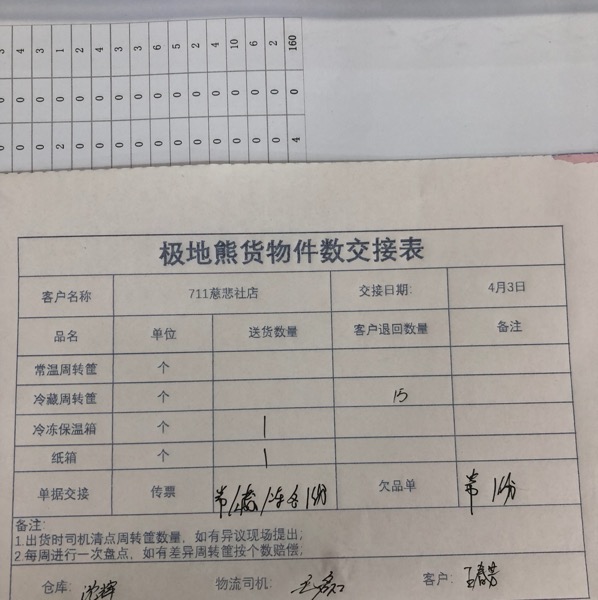 3 4 3 1 2 4 3 3 6 5 2 4 10 6 2 160
0 0 0 0 0 0 0 0 0 0 0 0 0 0 0 0
0 0 0 2 0 0 0 0 0 0 0 0 0 0 0 4
极地熊货物件数交接表
客户名称 711慈悲社店 交接日期: 4月3日
品名 单位 送货数量 客户退回数量 备注
常温周转筐 个
冷藏周转筐 个 15
冷冻保温箱 个 1
纸箱 个 1
单据交接 传票 常 冻各1份 欠品单 常1份
备注:
1.出货时司机清点周转筐数量,如有异议现场提出;
2.每周进行一次盘点,如有差异周转筐按个数赔偿;
仓库: 物流司机: 客户: 王春芳